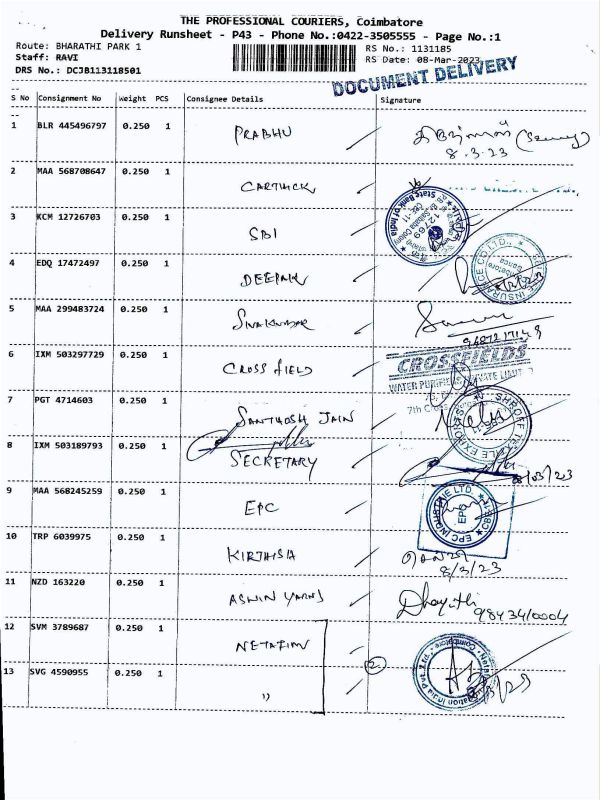 THE PROFESSIONAL COURIERS, Coimbatore
Delivery Runsheet - P43 - Phone No.:0422-3505555 - Page No.:1
Route: BHARATHI PARK 1 RS No.: 1131185
Staff: RAVI RS Date: 08-Mar-2023
DRS No.: DCJB113118501 DOCUMENT DELIVERY
S No Consignment No Weight PCS Consignee Details Signature
1 BLR 445496797 0.250 1 PRABHU
8.3.23
2 MAA 568708647 0.250 1 CARTHICK
3 KCM 12726703 0.250 1 SBI State Bank of India 12769
4 EDQ 17472497 0.250 1 DEEPAK INSURANCE CO.LTD.
5 MAA 299483724 0.250 1 SIVAKUMAR
6 IXM 503297729 0.250 1 CROSS FIELD CROSSFIELDS
WATER PURIFIERS PRIVATE LIMITED
7th Cross
7 PGT 4714603 0.250 1 SANTHOSH JAIN SHROFF TEXTILE EXPORTS
8 IXM 503189793 0.250 1 SECRETARY 8/03/23
9 MAA 568245259 0.250 1 EPC EPC INDUSTRIE LTD. CBE-1
10 TRP 6039975 0.250 1 KIRTHISA
8/3/23
11 NZD 163220 0.250 1 ASWIN YARNS Dhayathi
9843410004
12 SVM 3789687 0.250 1 NETAFIM
2
13 SVG 4590955 0.250 1 " Irrigation India Pvt. Ltd. Coimbatore